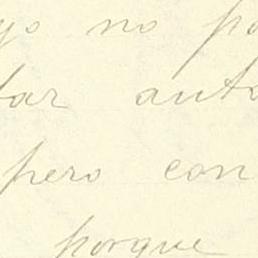 yo no p
tar anto
pero con
porque